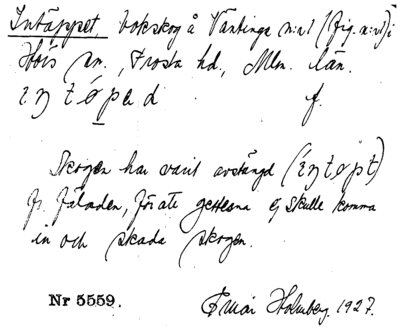 Intäppet bokskog å Väntinge n:r 1 (fig. n:r 1) i
Höö's sn., Frosta hd., Mlm. län.
intǿpad f.
Skogen har varit avstängd (intǿpt)
fr. fäladen, för att getterna ej skulle komma
in och skada skogen.
Nr 5559. Emar Holmberg. 1927.